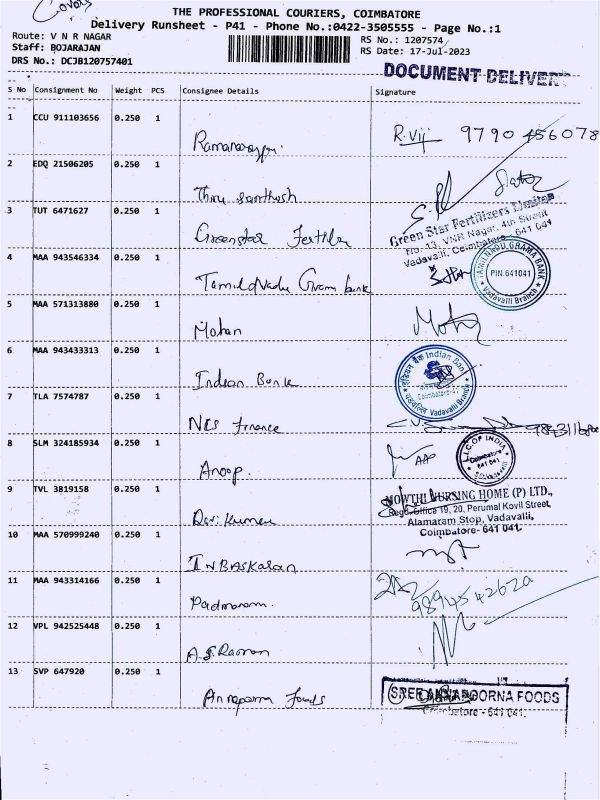 Covers
THE PROFESSIONAL COURIERS, COIMBATORE
Delivery Runsheet - P41 - Phone No.:0422-3505555 - Page No.:1
Route: V N R NAGAR
Staff: BOJARAJAN
DRS No.: DCJB120757401
RS No.: 1207574
RS Date: 17-Jul-2023
DOCUMENT DELIVERY
S No Consignment No Weight PCS Consignee Details Signature
1 CCU 911103656 0.250 1
R.Vij 9790456078
2 EDQ 21506205 0.250 1
Thiru Santhosh
3 TUT 6471627 0.250 1
Greenstar Fertilizer
Green Star Fertilizers Limited
No. 13, VNR Nagar, 4th Street
Vadavalli, Coimbatore - 641 041
4 MAA 943546334 0.250 1
TamilNadu Gram bank
TAMILNADU GRAMA BANK
PIN:641041
Vadavalli Branch
5 MAA 571313880 0.250 1
Mohan
6 MAA 943433313 0.250 1
Indian Bank
इंडियन बैंक Indian Bank
Coimbatore-41
Vadavalli Branch
7 TLA 7574787 0.250 1
NCS Finance
8 SLM 324185934 0.250 1
Anoop.
L.I.C. OF INDIA
Coimbatore
641 041
9 TVL 3819158 0.250 1
Devi Kumar
MOWTHI NURSING HOME (P) LTD.,
Regd. Office 19, 20, Perumal Kovil Street,
Alamaram Stop, Vadavalli,
Coimbatore- 641 041.
10 MAA 570999240 0.250 1
INBASKARAN
11 MAA 943314166 0.250 1
Padmaram.
12 VPL 942525448 0.250 1
A.S. Raman
13 SVP 647920 0.250 1
Annapoorna Foods
SREE ANNAPOORNA FOODS
Coimbatore - 641 041.